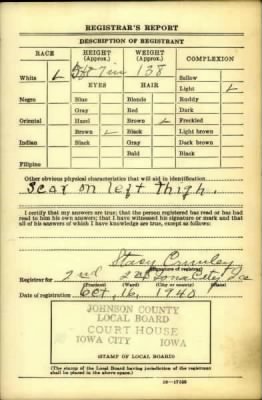 REGISTRAR'S REPORT
DESCRIPTION OF REGISTRANT
RACE HEIGHT (Approx.) WEIGHT (Approx.) COMPLEXION
White ✓ 5 ft 7 in 138 Sallow
EYES HAIR Light ✓
Negro Blue Blonde Ruddy
Gray Red Dark
Oriental Hazel Brown ✓ Freckled
Brown ✓ Black Light brown
Indian Black Gray Dark brown
Bald Black
Filipino
Other obvious physical characteristics that will aid in identification
Scar on left thigh.
I certify that my answers are true; that the person registered has read or has had
read to him his own answers; that I have witnessed his signature or mark and that
all of his answers of which I have knowledge are true, except as follows:
Stacy Crumley
(Signature of registrar)
Registrar for 2nd 2nd Iowa City Ia
(Precinct) (Ward) (City or county)
Date of registration Oct. 16, 1940
JOHNSON COUNTY
LOCAL BOARD
COURT HOUSE
IOWA CITY IOWA
(STAMP OF LOCAL BOARD)
(The stamp of the Local Board having jurisdiction of the registrant
shall be placed in the above space.)